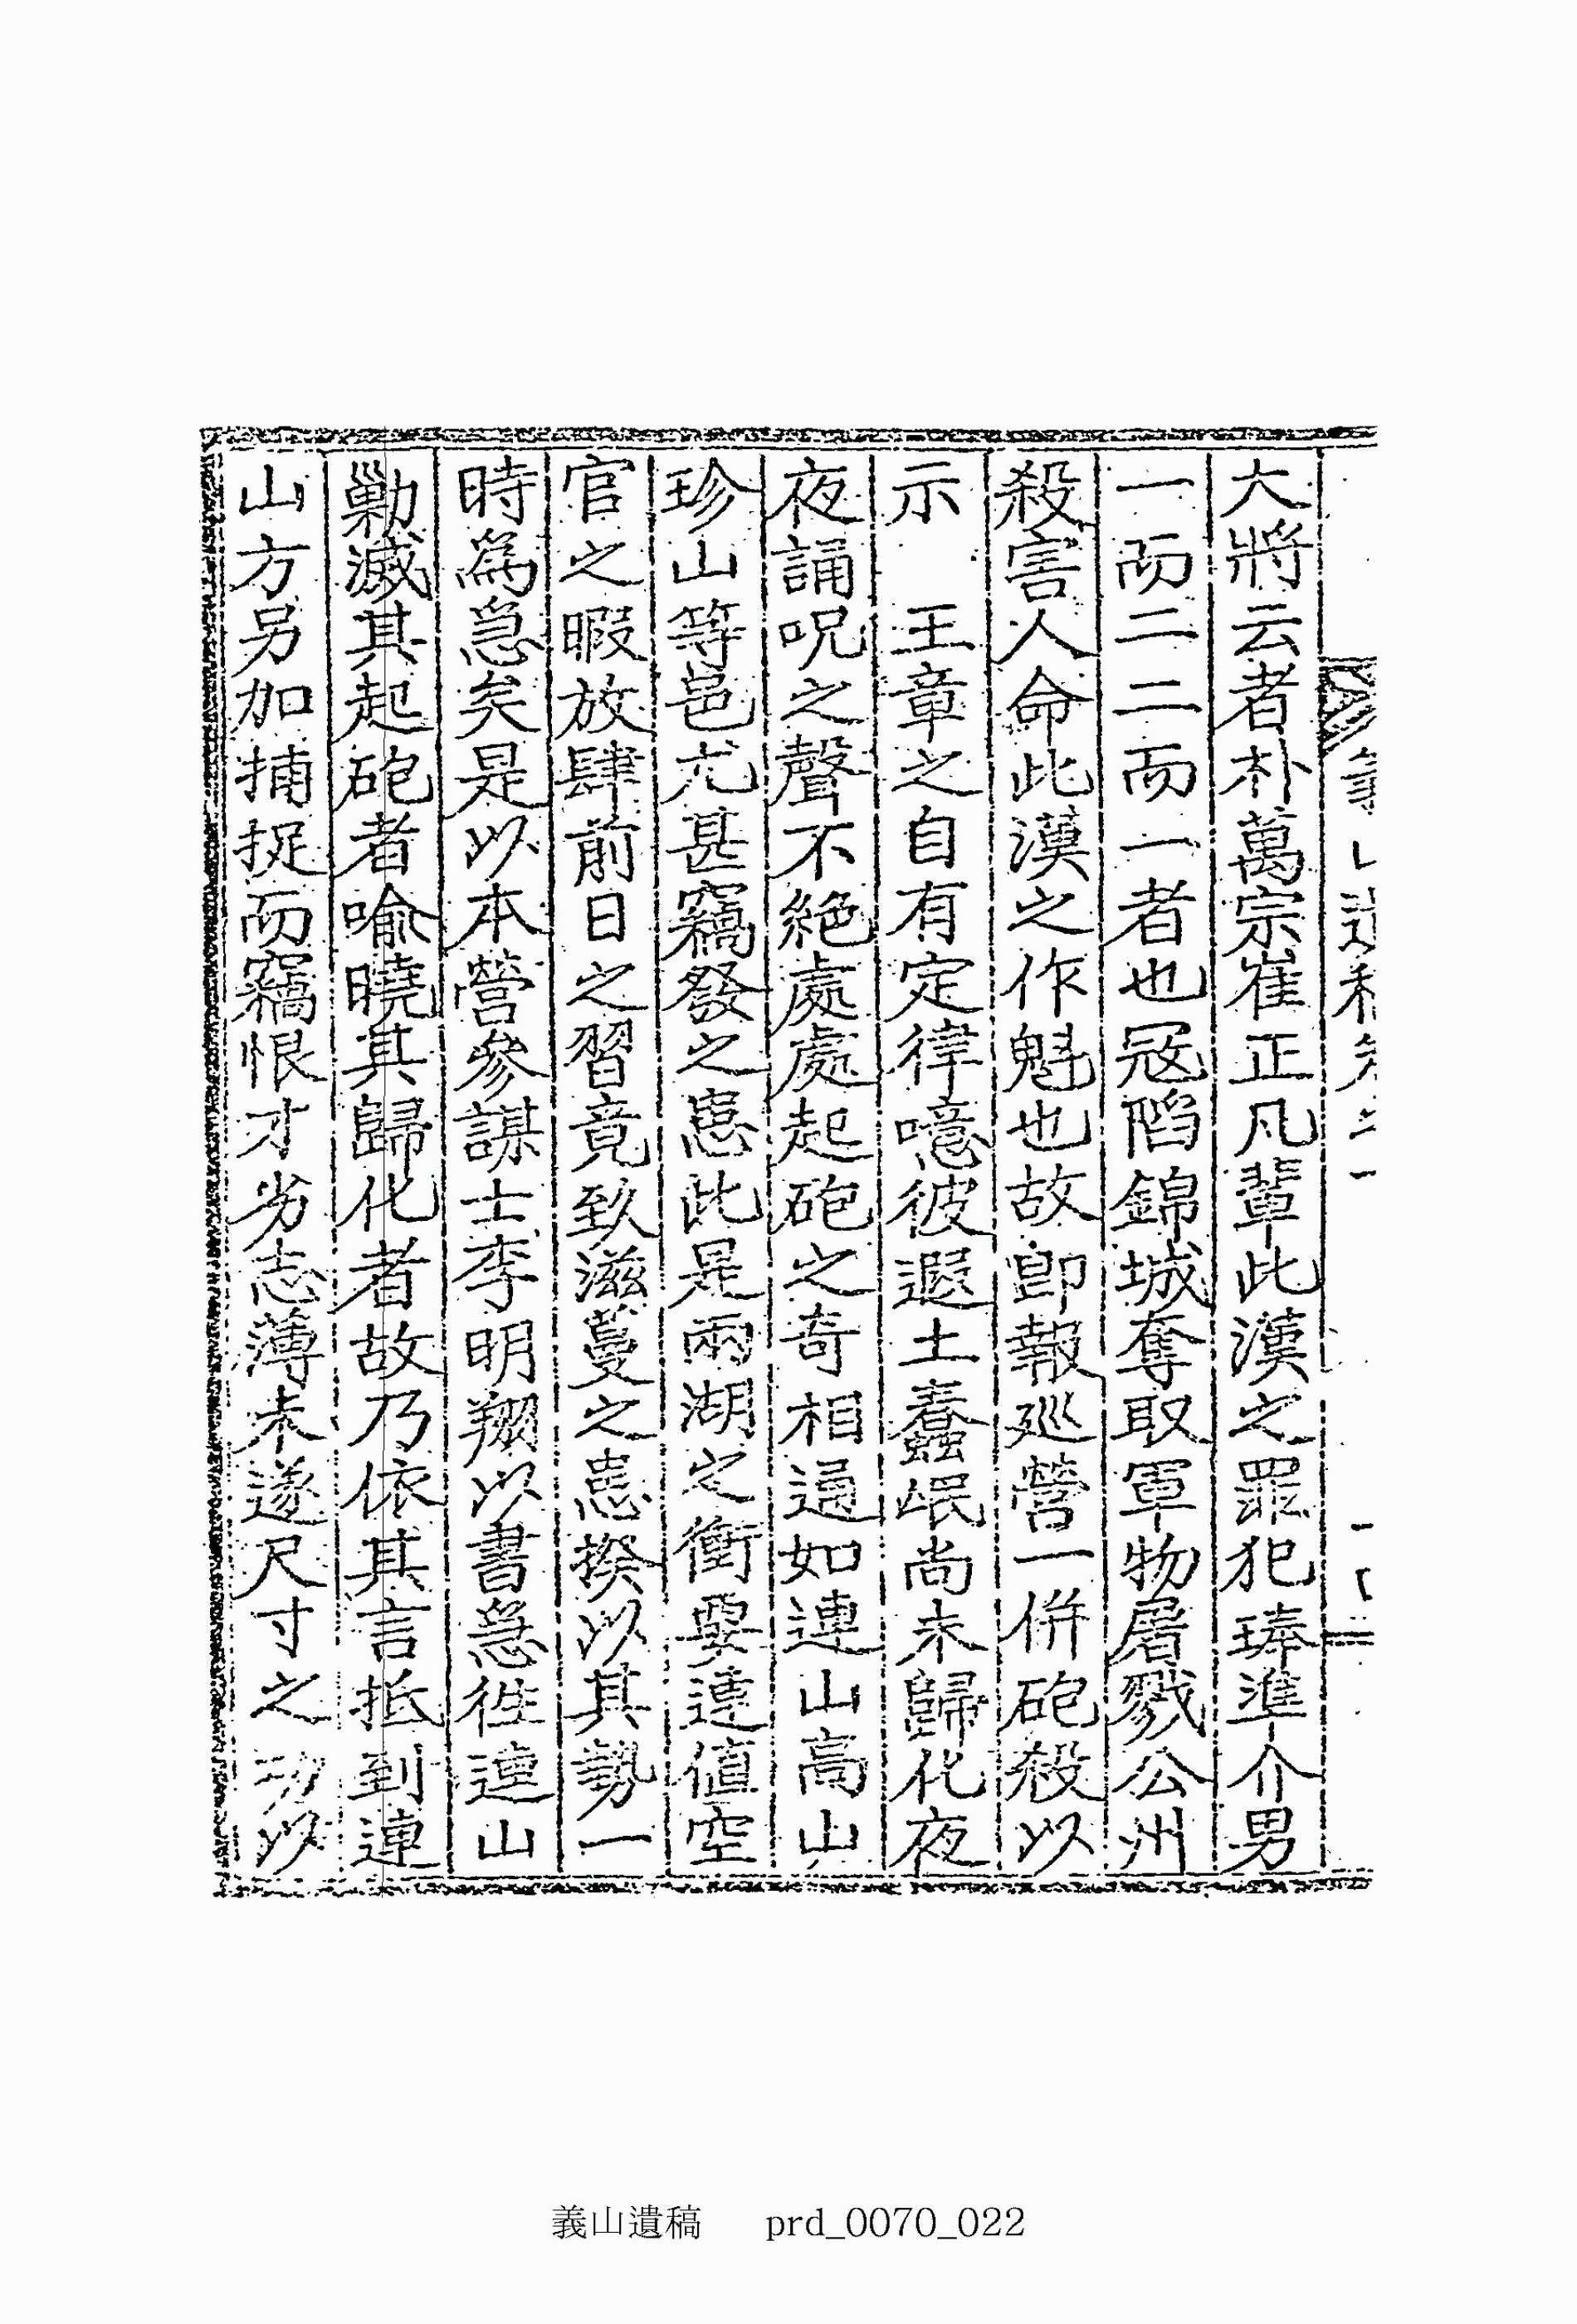 大將云者朴萬宗崔正凡輩此漢之罪犯琫準介男
一而二二而一者也寇陷錦城奪取軍物屠戮公州
殺害人命此漢之作魁也故卽報巡營一倂砲殺以
示　王章之自有定律噫彼遐土蠢氓尚未歸化夜
夜誦呪之聲不絶處處起砲之奇相通如連山高山
珍山等邑尤甚竊發之患此是兩湖之衝要連値空
官之暇放肆前日之習竟致滋蔓之患揆以其勢一
時爲急矣是以本營參謀士李明翔以書急徃連山
勦滅其起砲者喻曉其歸化者故乃依其言抵到連
山方另加捕捉而竊恨才劣志薄未遂尺寸之功以
義山遺稿 prd_0070_022